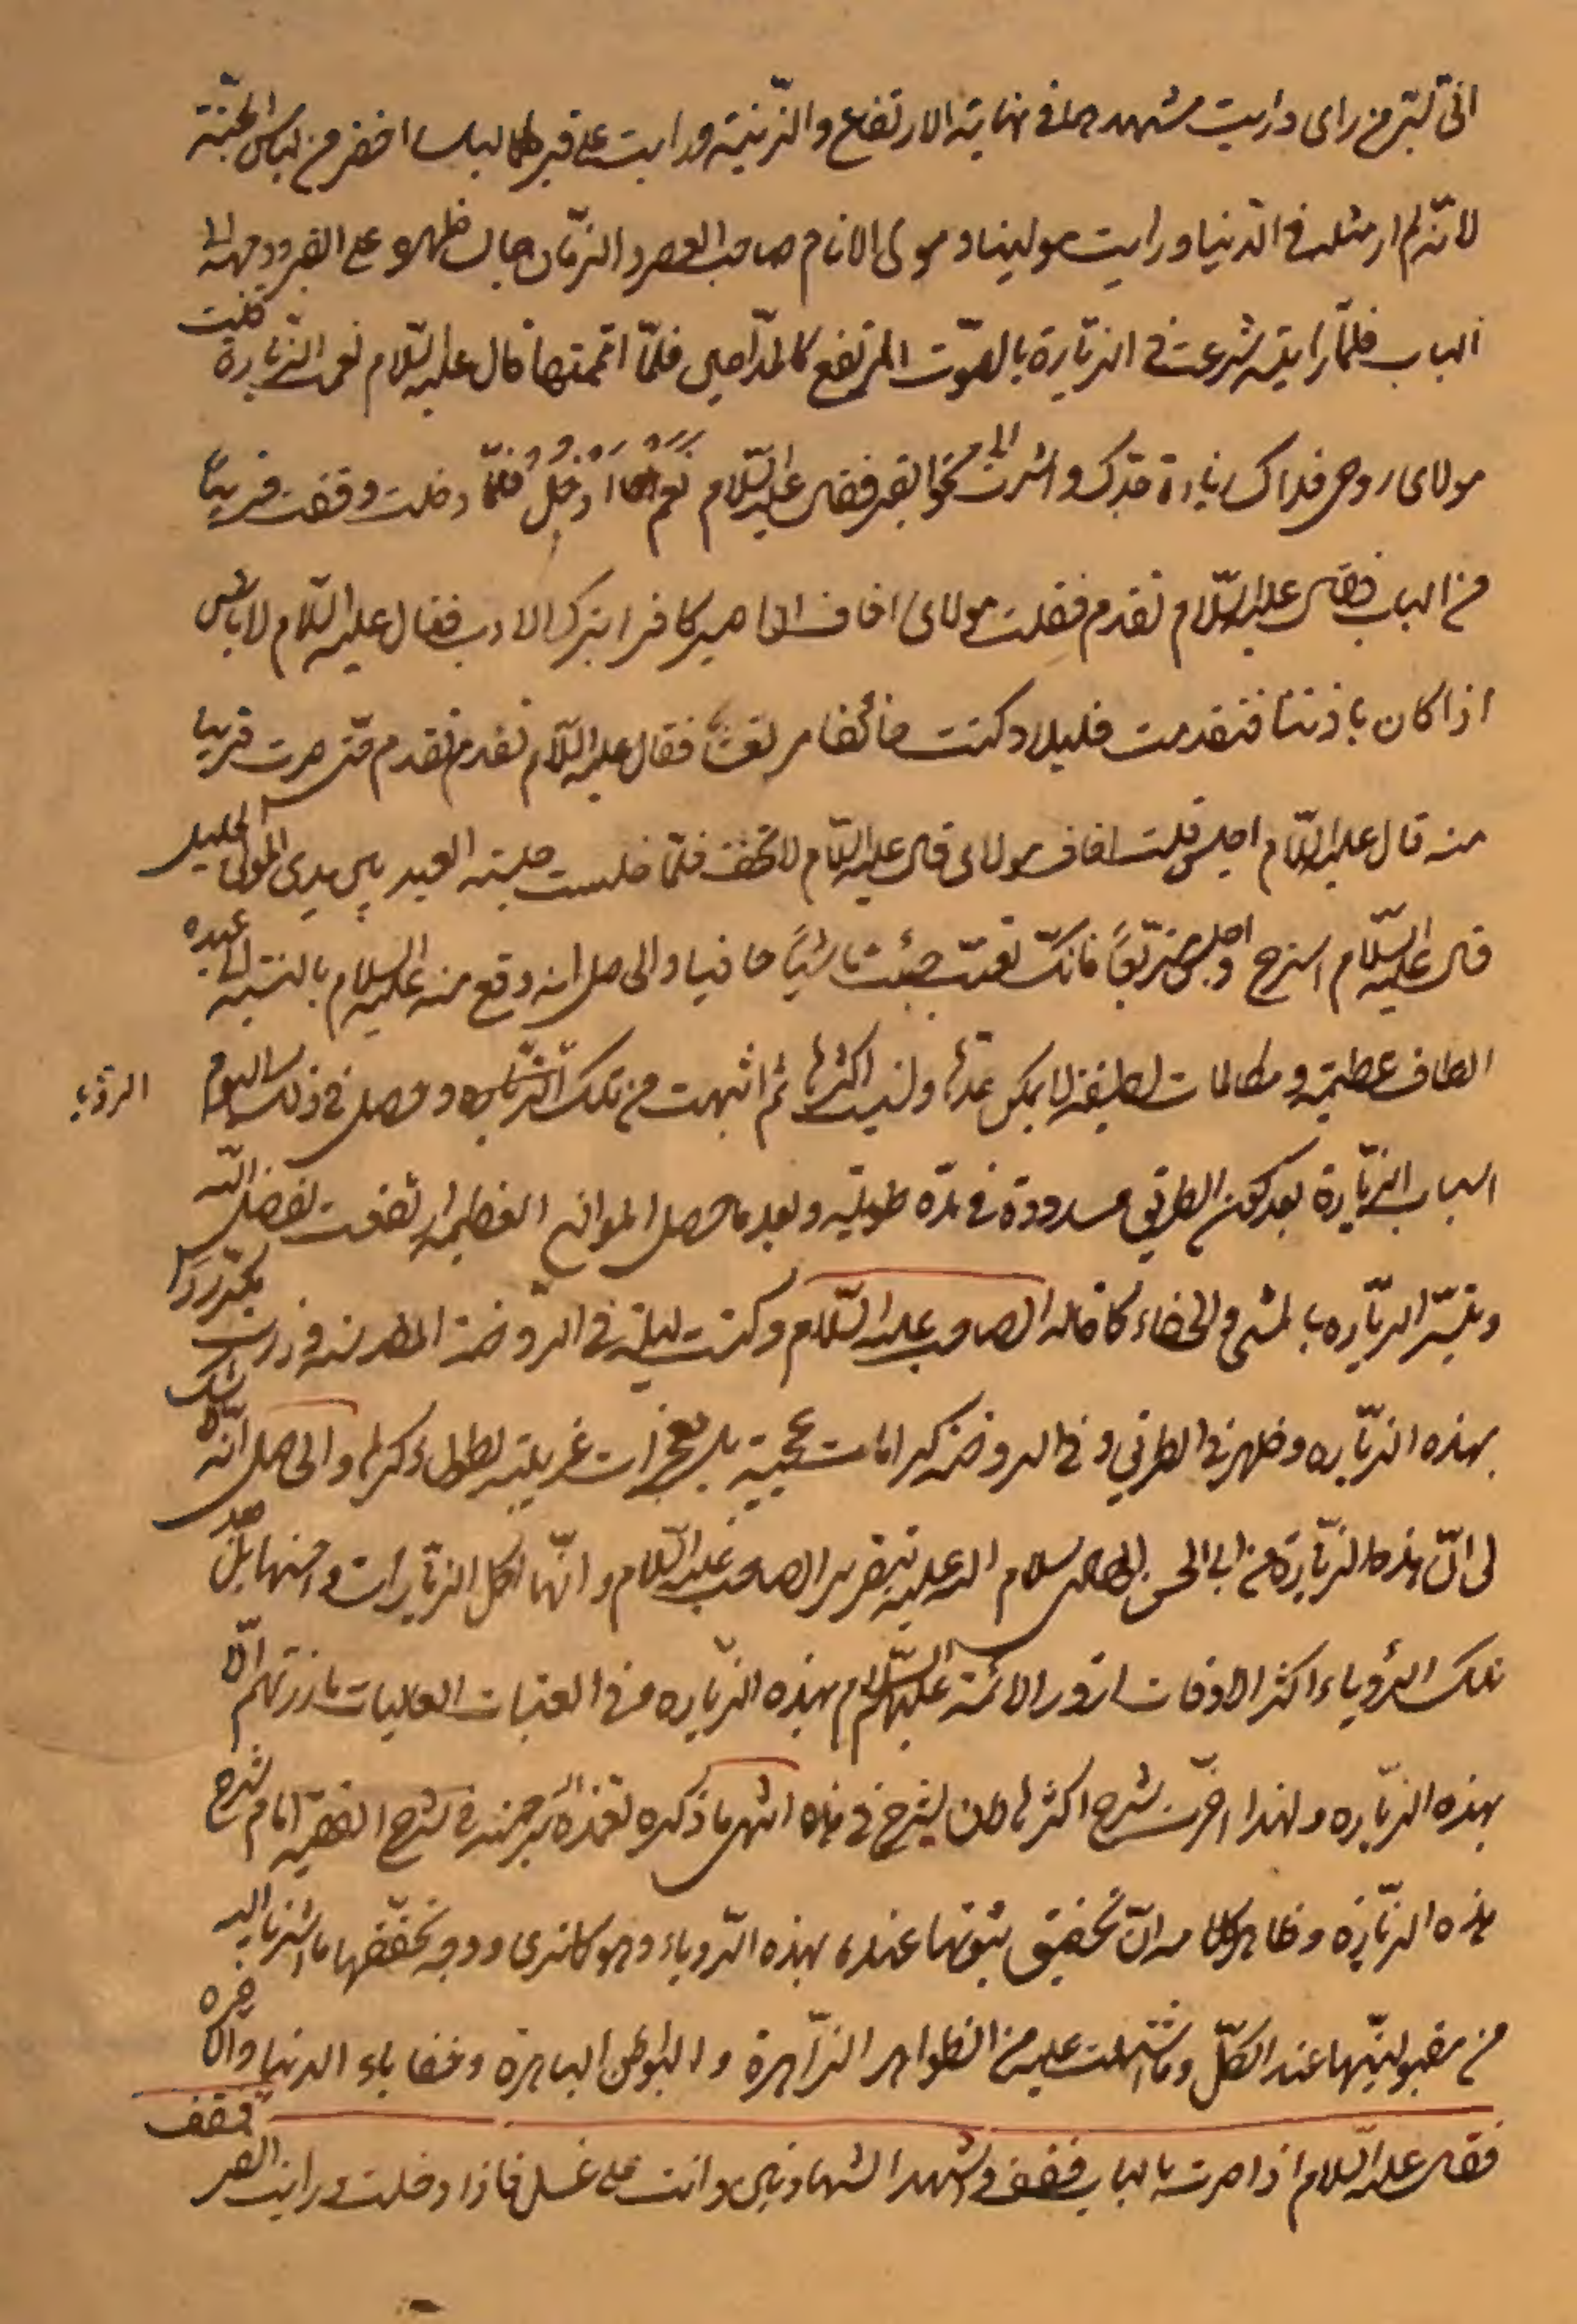 انی بسر من رای و رایت مشهدهما فی نهایة الارتفاع و الزّینة و رایت علی قبرهما لباسا اخضر من لباس الجنّة
لانّه لم ار مثله فی الدّنیا و رایت مولینا و مولی الانام صاحب العصر و الزّمان جالسا ظهره علی القبر و وجهه الی
الباب فلمّا رایته شرعت فی الزّیارة بالصّوت المرتفع کالمدّاحین فلمّا اتممتها قال علیه السّلام نعمت الزّیارة قلت
مولای روحی فداک زیارة جدّک و اشرت الی نحو القبر فقال علیه السّلام نعم ادخل فلمّا دخلت وقفت قریبا
من الباب فقال علیه السّلام تقدم فقلت مولای اخاف ان اصیر کافرا بترک الادب فقال علیه السّلام لا باس
اذا کان باذننا فتقدمت قلیلا و کنت خائفا مرتعشا فقال علیه السّلام تقدم تقدم حتی صرت قریبا
منه قال علیه السّلام اجلس قلت اخاف مولای قال علیه السّلام لا تخف فلمّا جلست جلسة العبد بین یدی المولی الجلیل
قال علیه السّلام استرح و اجلس متربّعا فانّک تعبت جئت ماشیًا حافیا و الحاصل انه وقع منه علیه السلام بالنسبة الی عبده
الطاف عظیمة و مکالمات لطیفة لا یمکن عدّها و نسیت اکثرها ثم انتبهت من تلک الزیاره و حصل فی ذلک الیوم الرؤیا
اسباب الزّیارة بعد کون الطریق مسدودة فی مدّة طویلة و بعد ما حصل الموانع العظیمة ارتفعت بفضل اللّه
و تیسّر الزّیاره بالمشی و الحفاء کما قاله الصاحب علیه السّلام و کنت لیلة فی الرّوضة المقدسة و زرت مکررا
بهذه الزّیاره و ظهر فی الطریق و فی الروضة کرامات عجیبة بل معجزات غریبة یطول ذکرها و الحاصل انّه لا شک
لی انّ هذه الزّیارة من ابی الحسن الهادی سلام اللّه علیه بتقریر الصاحب علیه السّلام و انّها اکمل الزّیارات و احسنها بل بعد
تلک الرؤیاء اکثر الاوقات ازور الائمّة علیهم السّلام بهذه الزّیاره و فی العتبات العالیات ما زرتهم الّا
بهذه الزّیاره و لهذا اخّرت شرح اکثرها لان یشرح فی هذه انتهی ما ذکره تغمّده اللّه برحمته فی شرح الفقیه امام شرح
هذه الزّیارة و ظاهر کلامه انّ تحقیق ثبوتها عنده بهذه الرّویاء و هو کما تری و وجه تحقّقها ما اشرنا الیه
من مقبولیّتها عند الکلّ و ما اشتملت علیه من الظواهر الزّاهرة و البواطن الباهرة و خفایاء الدنیا و الآخره
فقال علیه السّلام اذا صرت بالباب فقف و اشهد الشهادتین و انت علی غسل فاذا دخلت و رایت القبر فقف